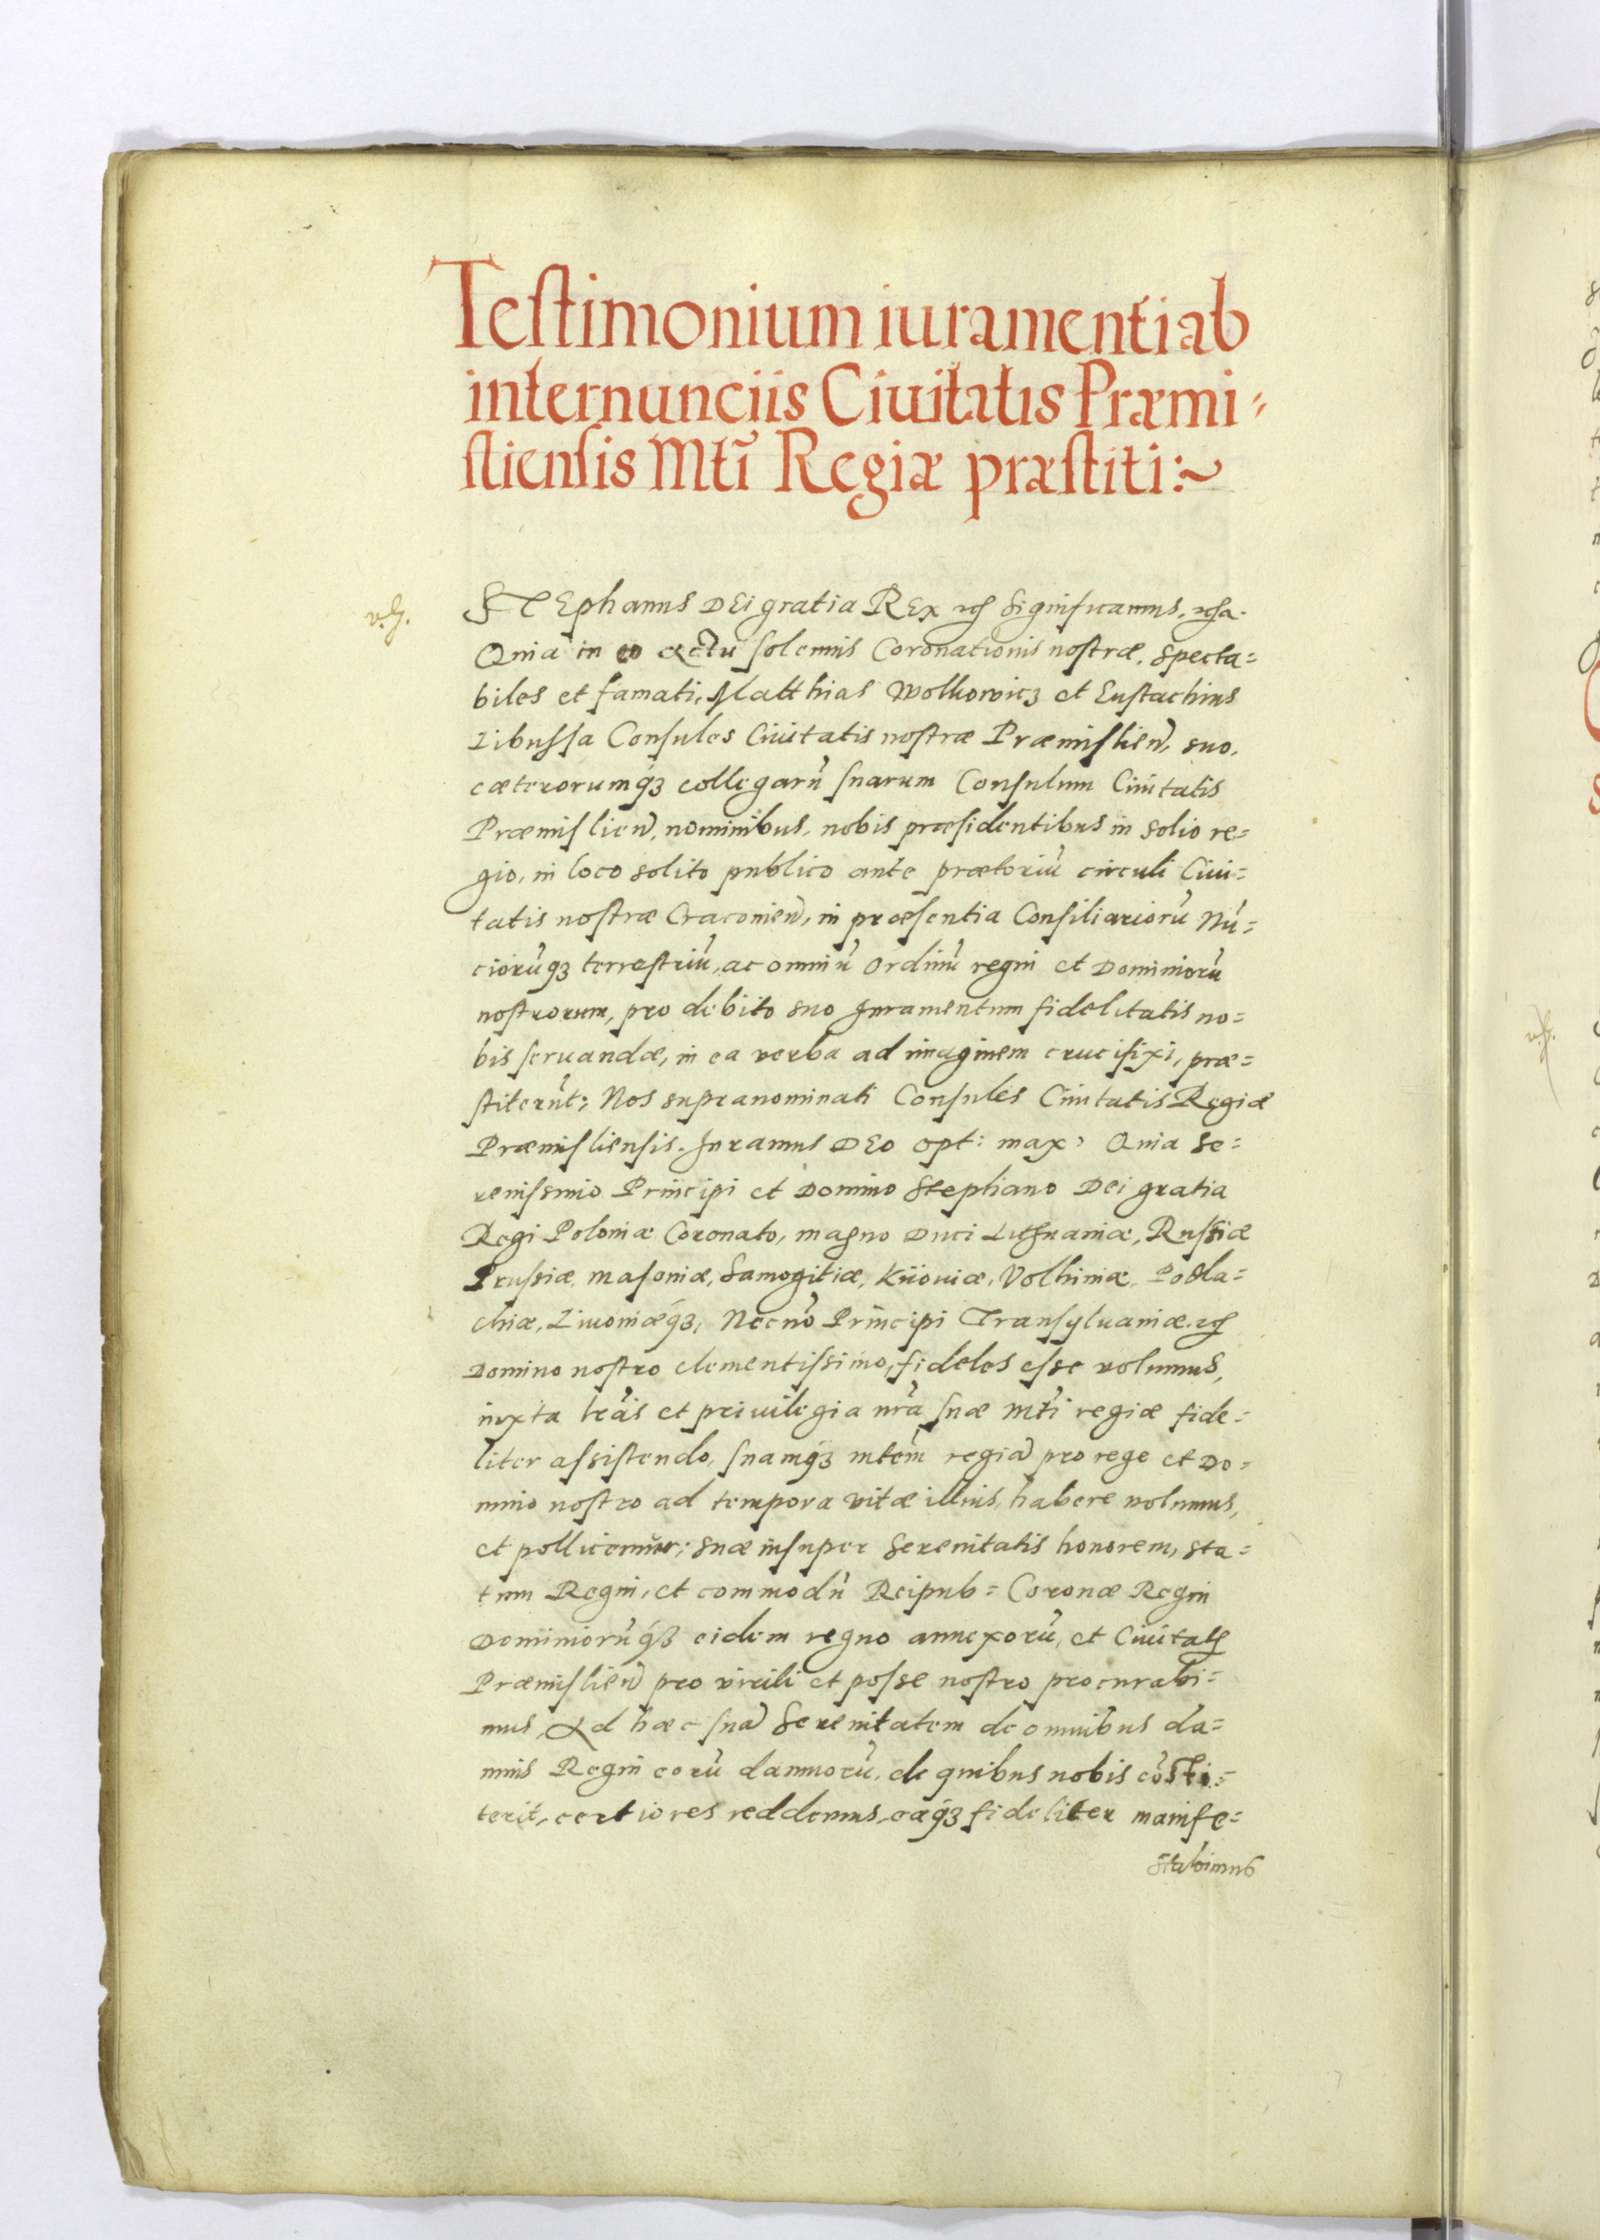 Testimonium iuramenti ab
internunciis Ciuitatis Præmi-
sliensis Mti Regiæ præstiti:~
STEphanus DEi gratia REx etc Significamus, etca.
Quia in eo actu solennis Coronationis nostræ, specta=
biles et famati, Matthias Wolkowicz et Eustachius
Libussa Consules Ciuitatis nostræ Præmislien, suo,
cæterorumq́ꝫ collegarū suarum Consulum Ciuitatis
Præmislien, nominibus, nobis præsidentibus in solio re=
gio, in loco solito publico ante prætoriū circuli Ciui=
tatis nostræ Cracouien, in præsentia Consiliariorū Nū=
ciorūqꝫ terrestriū, ac omniū ordinū regni et Dominiorū
nostrorum, pro debito suo Juramentum fidelitatis no=
bis seruandæ, in ea verba ad imaginem crucifixi, præ=
stiterūt; Nos supranominati Consules Ciuitatis Regiæ
Præmisliensis. Juramus DEO opt: max, Quia Se=
renissimo Principi et Domino Stephano Dei gratia
Regi Poloniæ Coronato, magno Duci Lithuaniæ, Russiæ
Prussiæ, Masouiæ, Samogitiæ, Kiiouiæ, Volhiniæ, Podla=
chiæ, Liuoniæq́ꝫ, Necnō Principi Transyluaniæ etc
Domino nostro clementissimo, fideles esse volumus,
iuxta lrās et priuilegia nrā suæ Mti regiæ fide=
liter assistendo, suamq́ꝫ mtem regiā pro rege et Do=
mino nostro ad tempora vitæ illius, habere volumus,
et pollicemur; suæ insuper Serenitatis honorem, sta=
tum Regni, et commodū Reipub= Coronæ Regni
Dominiorūq́ꝫ eidem regno annexorū, et Ciuitatis
Præmislien pro virili et posse nostro procurabi=
mus, Ad hæc suā Serenitatem de omnibus dā=
mnis Regni eorū damnorū, de quibus nobis cōsti=
terit, certiores reddemus, eaq́ꝫ fideliter manife=
stabimus